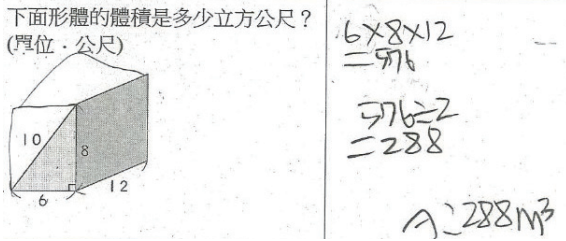 下面形體的體積是多少立方公尺？
(單位．公尺)
10
8
6
12
6×8×12
=576
576÷2
=288
A:288m³